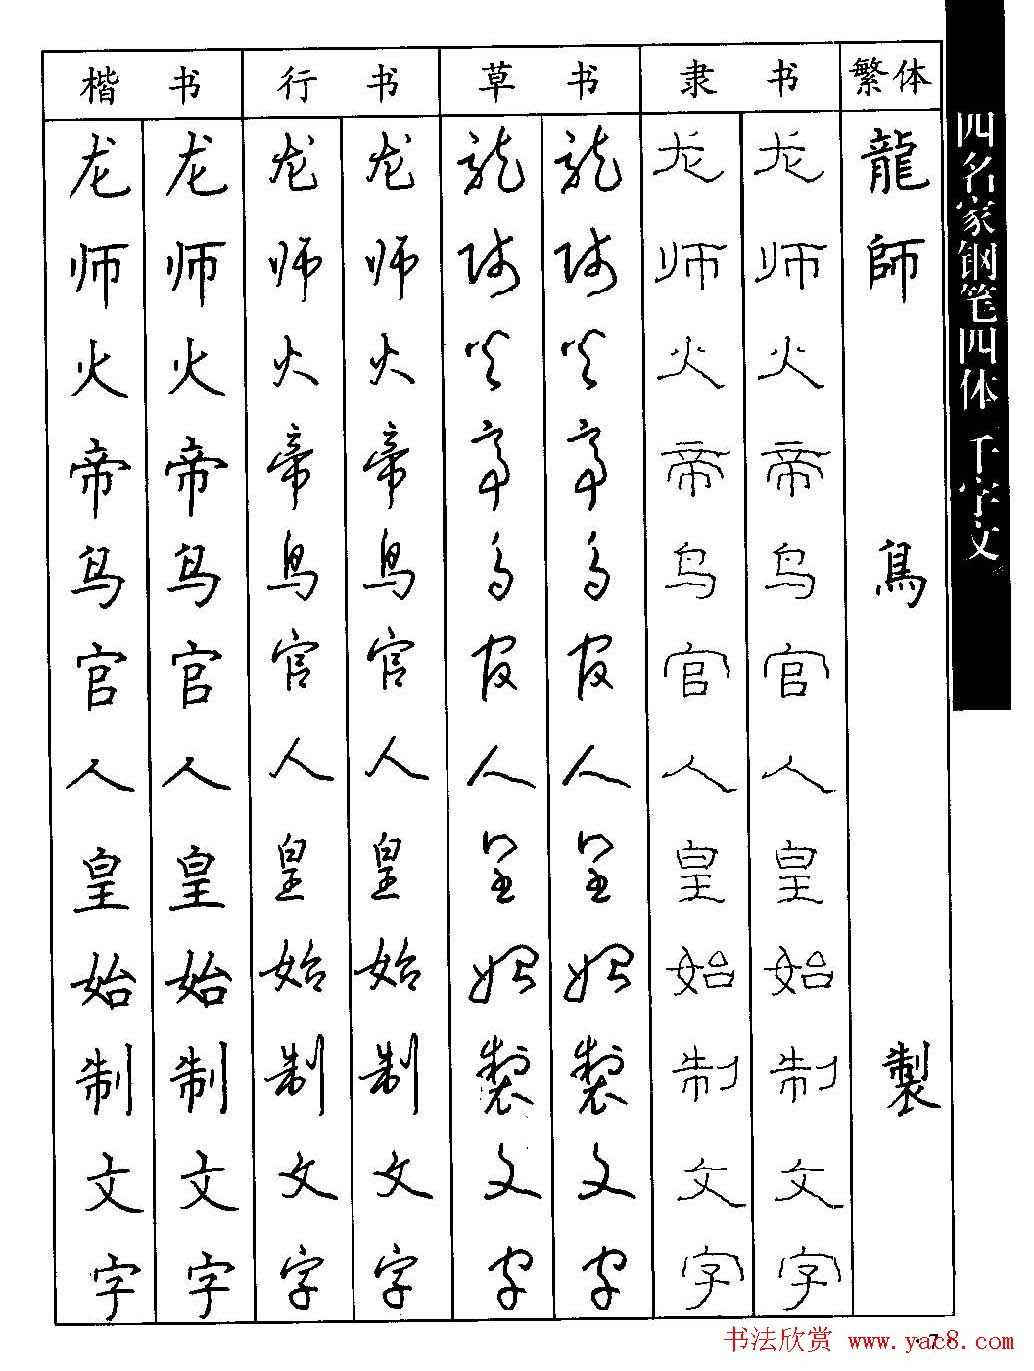 楷书 行书 草书 隶书 繁体
龙 龙 龙 龙 龍 龍 龙 龙 龍
师 师 师 师 师 师 师 师 師
火 火 火 火 火 火 火 火
帝 帝 帝 帝 帝 帝 帝 帝
鸟 鸟 鸟 鸟 鸟 鸟 鸟 鸟 鳥
官 官 官 官 官 官 官 官
人 人 人 人 人 人 人 人
皇 皇 皇 皇 皇 皇 皇 皇
始 始 始 始 始 始 始 始
制 制 制 制 製 製 制 制 製
文 文 文 文 文 文 文 文
字 字 字 字 字 字 字 字
四名家钢笔四体 千字文
·7·
书法欣赏 www.yac8.com